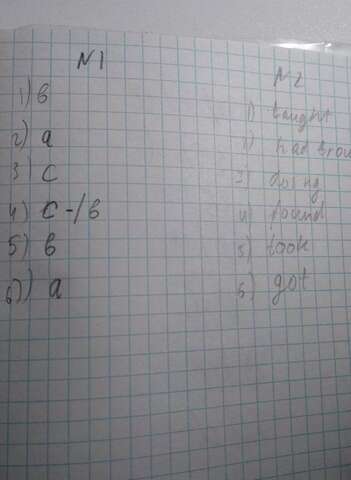 N1
1) в
2) a
3) c
4) c-/в
5) в
6) a
N2
1) taught
2) had
3) doing
4) found
5) took
6) got